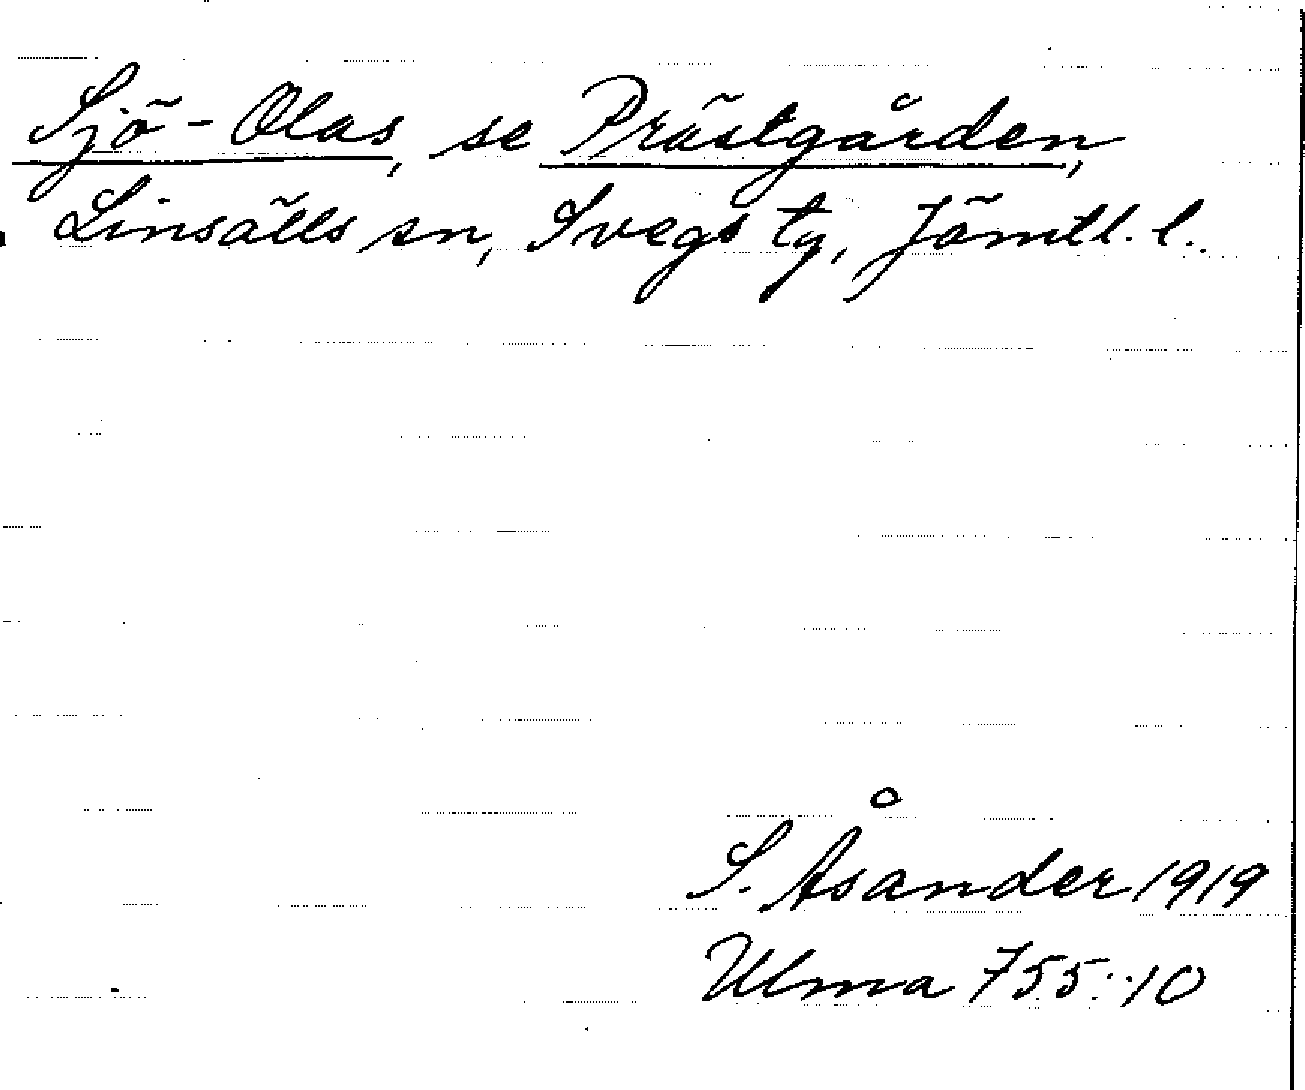 Sjö-Olas, se Prästgården,
Linsälls sn, Svegs tg, Jämtl. l.
S. Åsander 1919
Ulma 755:10